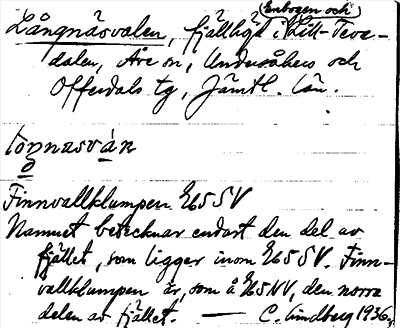 Långnäsvalen, fjällhöjd i (Enbogen och) Lill-Teve-
dalen, Åre sn, Undersåkers och
Offerdals tg, Jämtl. län.
Finnvallklumpen SV
Namnet betecknar endast den del av
fjället, som ligger inom SV. Finn-
vallklumpen är, som å NV, den norra
delen av fjället. — C. Lindberg 1936.